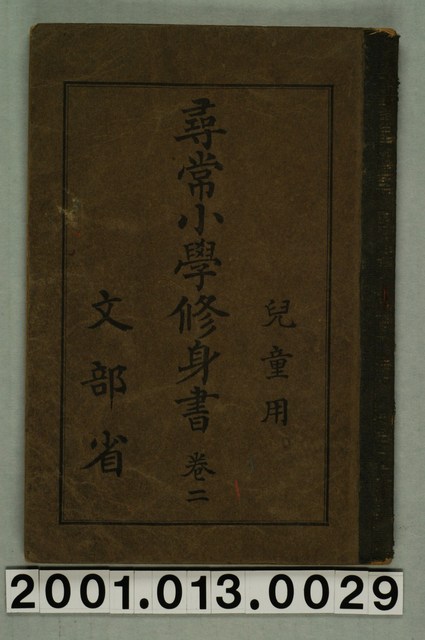 兒童用
尋常小學修身書 卷二
文部省
2001.013.0029